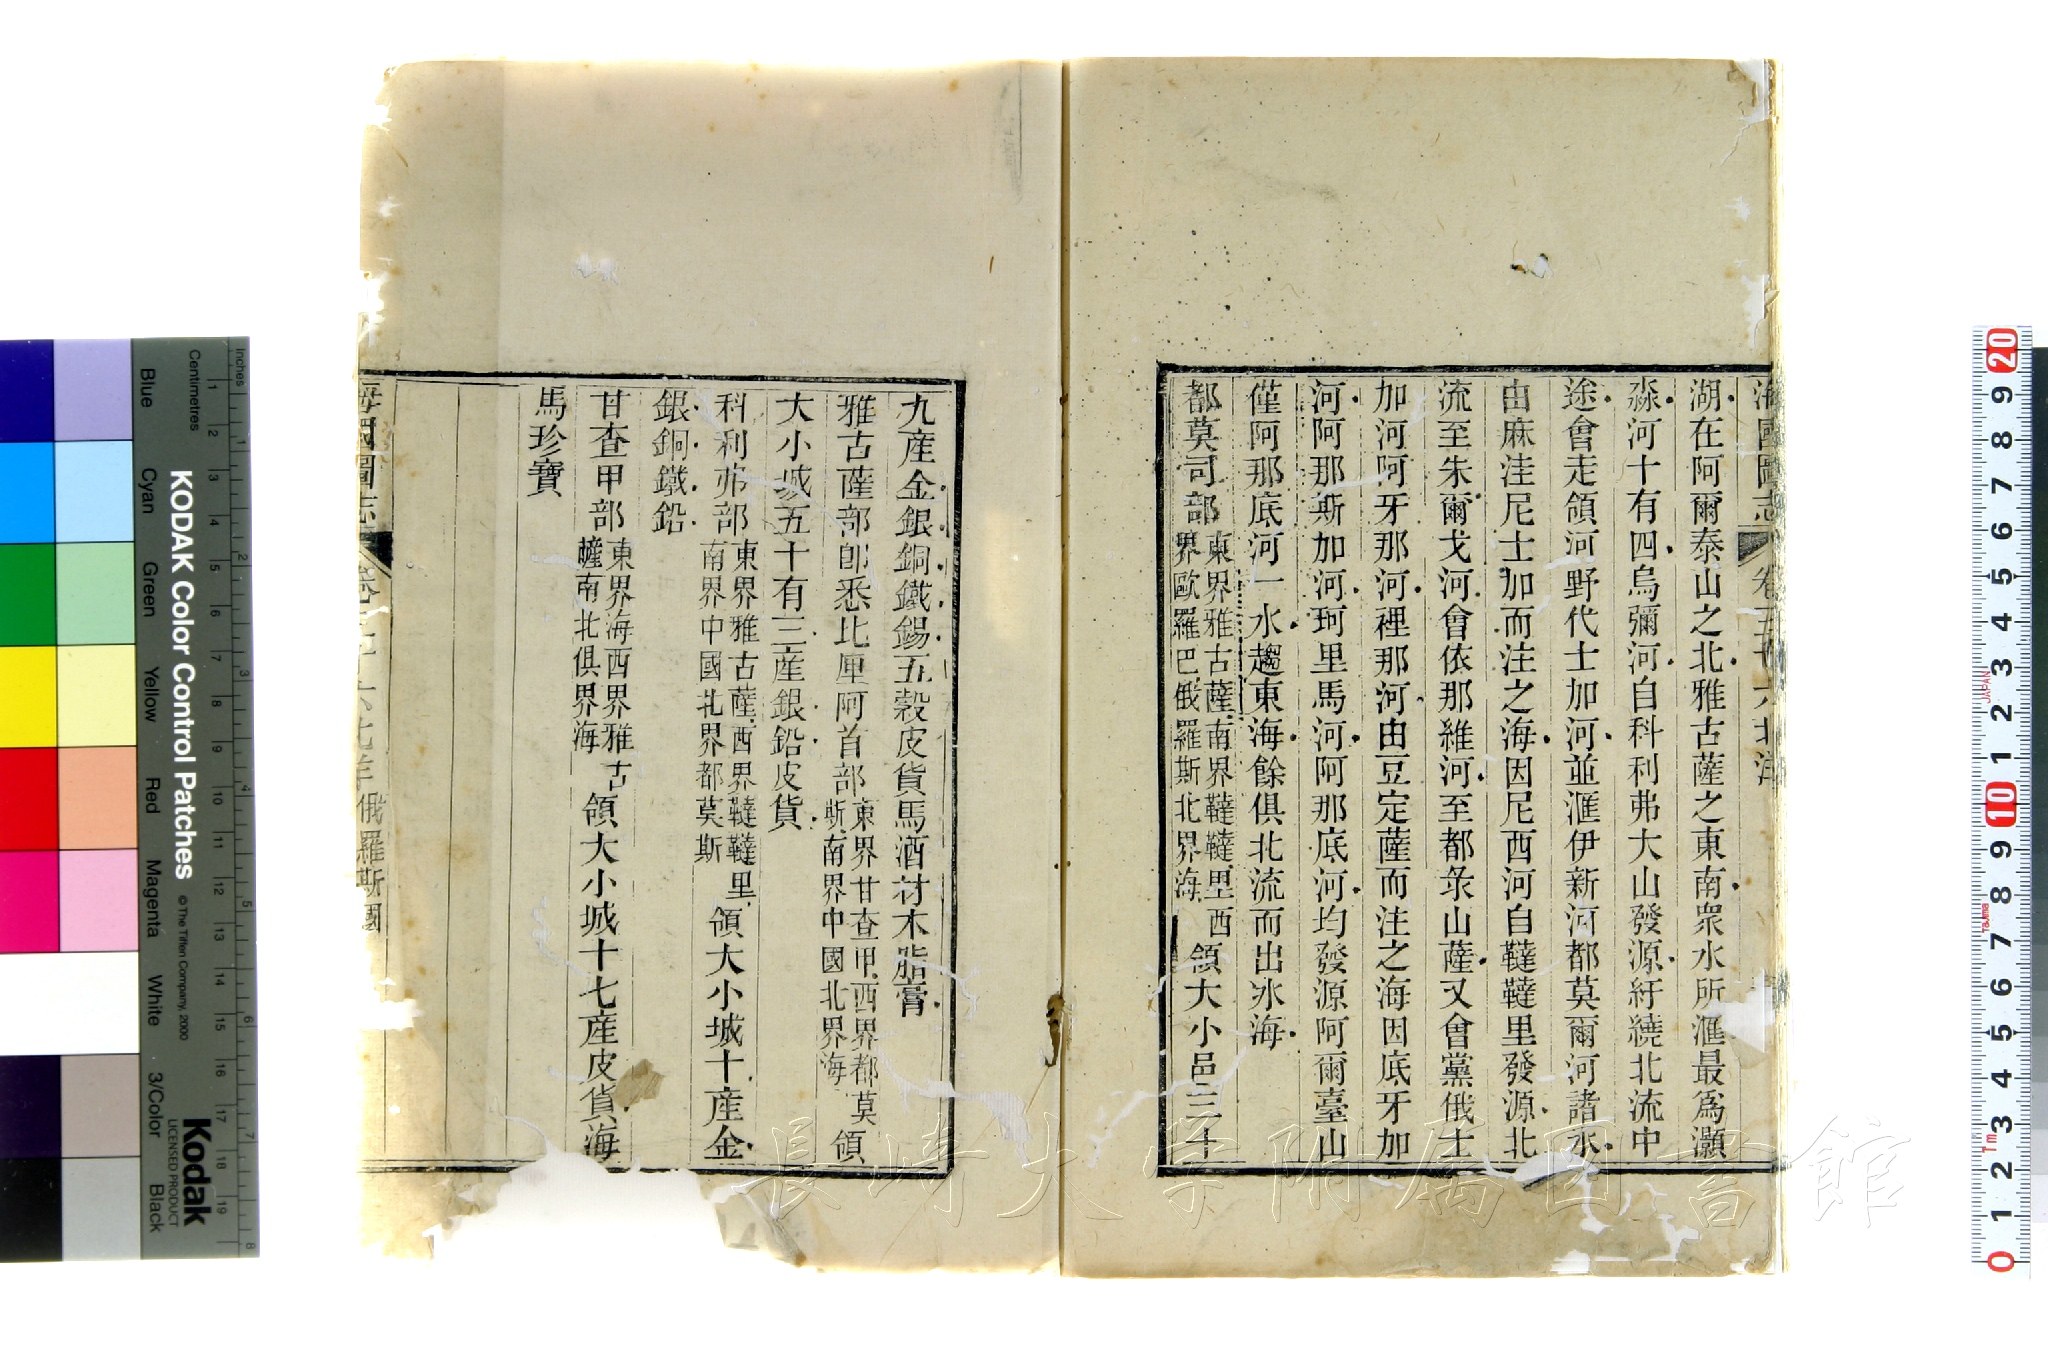 海國圖志 卷五十六 北洋
湖在阿爾泰山之北雅古薩之東南衆水所滙最爲灝
淼河十有四烏彌河自科利弗大山發源紆繞北流中
途會走領河野代士加河並滙伊新河都莫爾河諸水
由麻洼尼士加而注之海因尼西河自韃韃里發源北
流至朱爾戈河會依那維河至都汞山薩又會黨俄士
加河阿牙那河裡那河由豆定薩而注之海因底牙加
河阿那斯加河珂里馬河阿那底河均發源阿爾臺山
僅阿那底河一水趨東海餘俱北流而出冰海
都莫司部東界雅古薩南界韃韃里西
界歐羅巴俄羅斯北界海領大小邑三十
九產金銀銅鐵錫五穀皮貨馬酒材木脂膏
雅古薩部卽悉比厘阿首部東界甘查甲西界都莫
斯南界中國北界海領
大小城五十有三產銀鉛皮貨
科利弗部東界雅古薩西界韃韃里
南界中國北界都莫斯領大小城十產金
銀銅鐵鉛
甘查甲部東界海西界雅古
薩南北俱界海領大小城十七產皮貨海
馬珍寶
海國圖志 卷五十六 北洋 俄羅斯國
長崎大学附属図書館
KODAK Color Control Patches
©The Tiffen Company, 2000
Kodak
LICENSED PRODUCT
Inches
Centimetres
Blue
Cyan
Green
Yellow
Red
Magenta
White
3/Color
Black